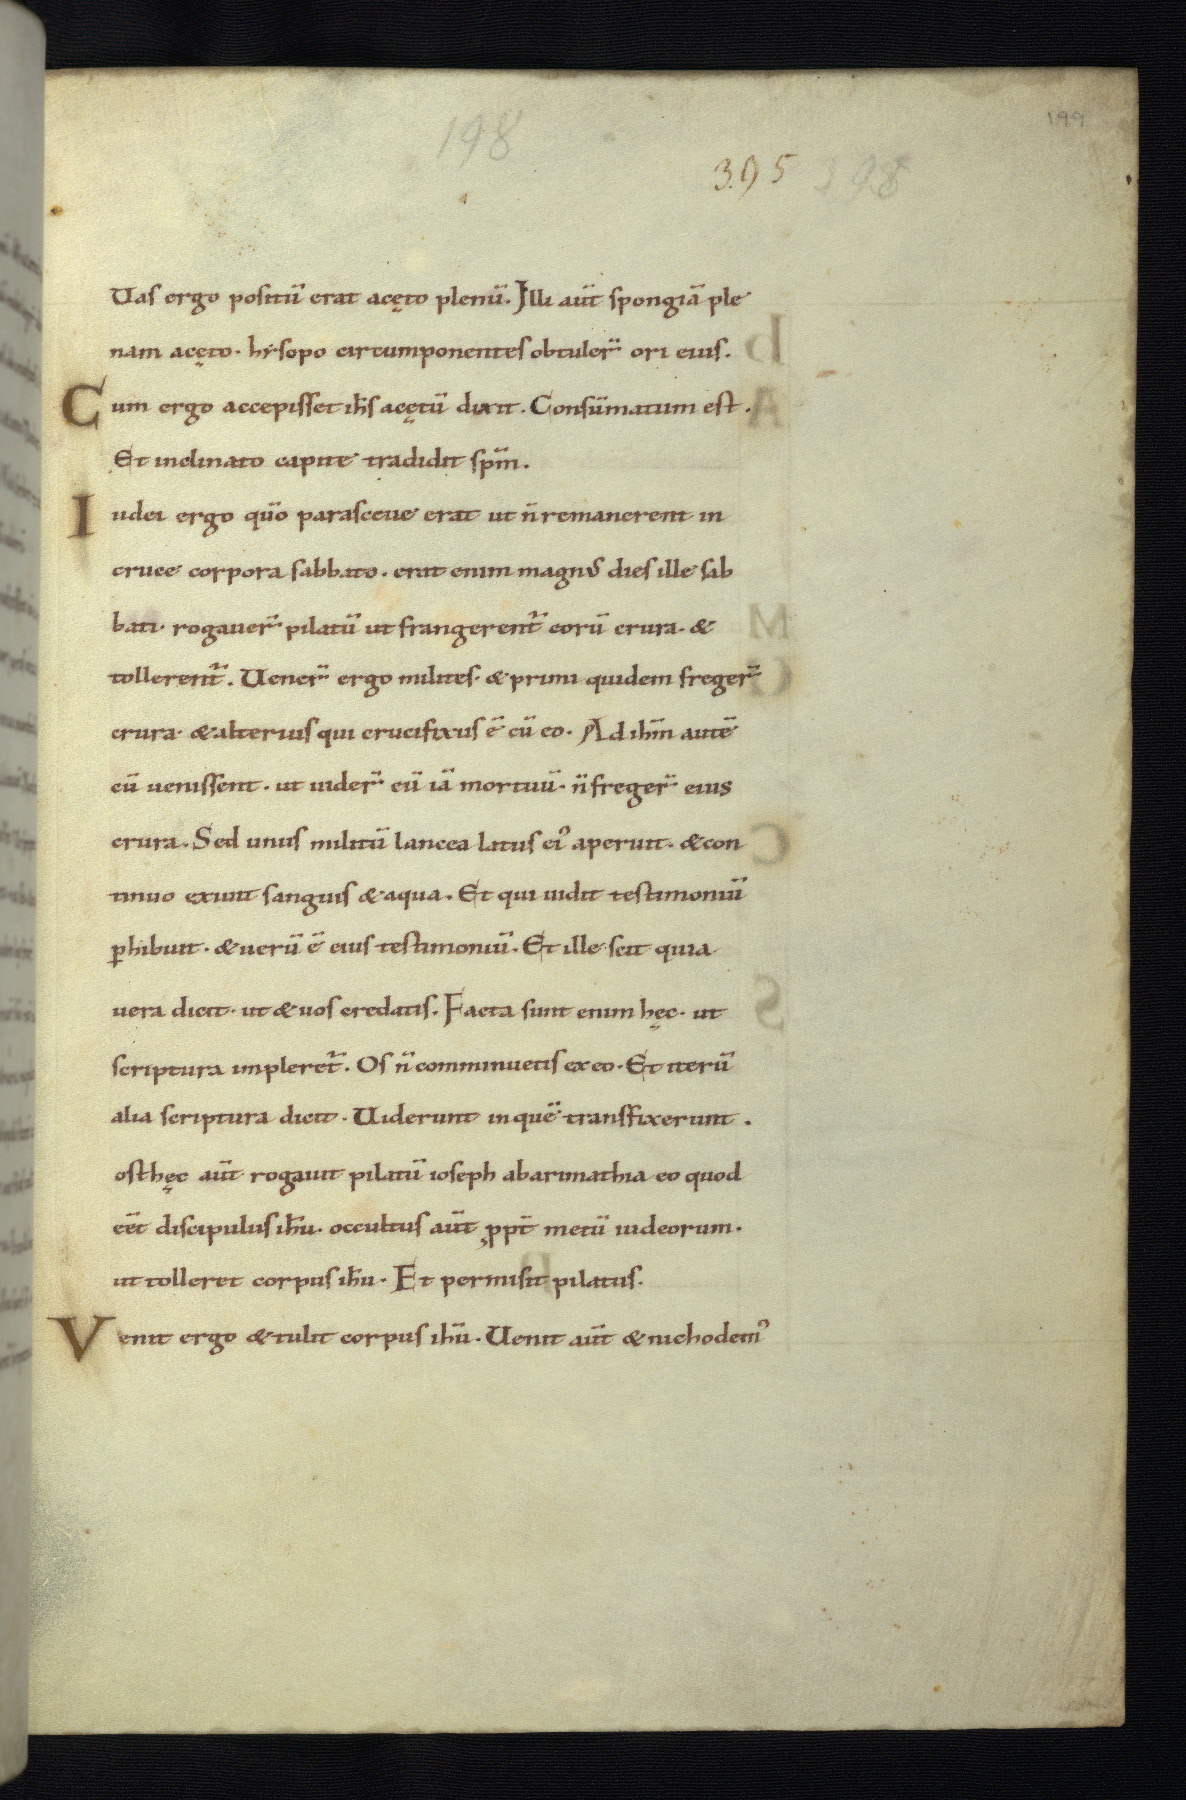 198
199
395 398
Uas ergo positū erat acęto plenū. Illi aūt spongiā ple
nam acęto. hẏsopo circumponentes obtuler̄ ori eius.
Cum ergo accepisset ih̄s acętū dixit. Consūmatum est.
Et inclinato capite tradidit sp̄m.
Iudei ergo qūo parasceue erat ut n̄ remanerent in
cruce corpora sabbato. erat enim magnꝰ dies ille sab
bati. rogauer̄ pilatū ut frangerent̄ eorū crura. &
tollerent̄. Uener̄ ergo milites. & primi quidem freger̄
crura. & alterius qui crucifixus ē cū eo. Ad ih̄m autē
cū uenissent. ut uider̄ eū iā mortuū. n̄ freger̄ eius
crura. Sed unus militū lancea latus eiꝰ aperuit. & con
tinuo exiuit sanguis & aqua. Et qui uidit testimoniū
ꝑhibuit. & uerū ē eius testimoniū. Et ille scit quia
uera dicit. ut & uos credatis. Facta sunt enim hęc. ut
scriptura impleret̄. Os n̄ comminuetis ex eo. Et iterū
alia scriptura dicit. Uiderunt in quē transfixerunt.
osthęc aūt rogauit pilatū ioseph abarimathia eo quod
eēt discipulus ih̄u. occultus aūt ꝓpt̄ metū iudeorum.
ut tolleret corpus ih̄u. Et permisit pilatus.
Venit ergo & tulit corpus ih̄u. Uenit aūt & nichodemꝰ